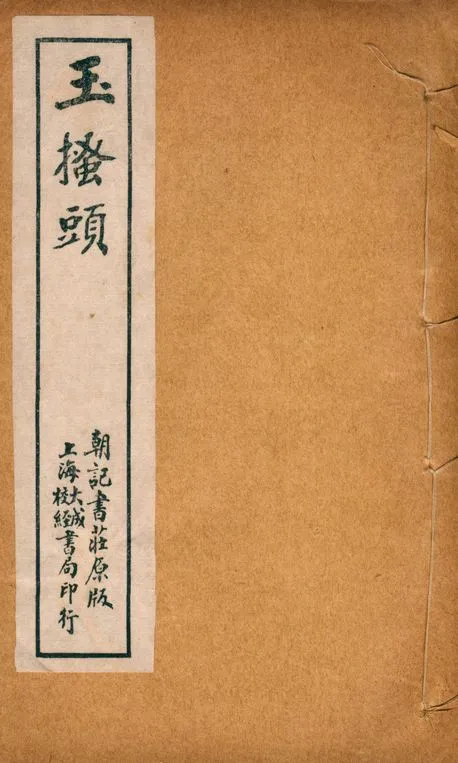 玉搔頭
朝記書莊原版
上海大成校經書局印行